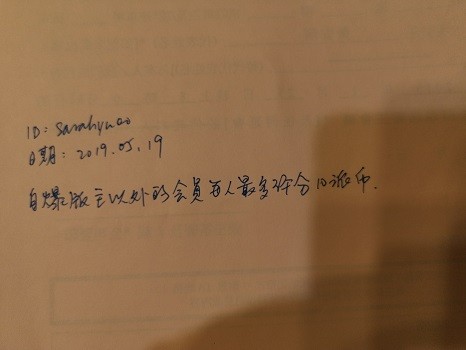 ID:
日期: 2019.05.19
自爆版主以外的会员每人最多评分10派币.